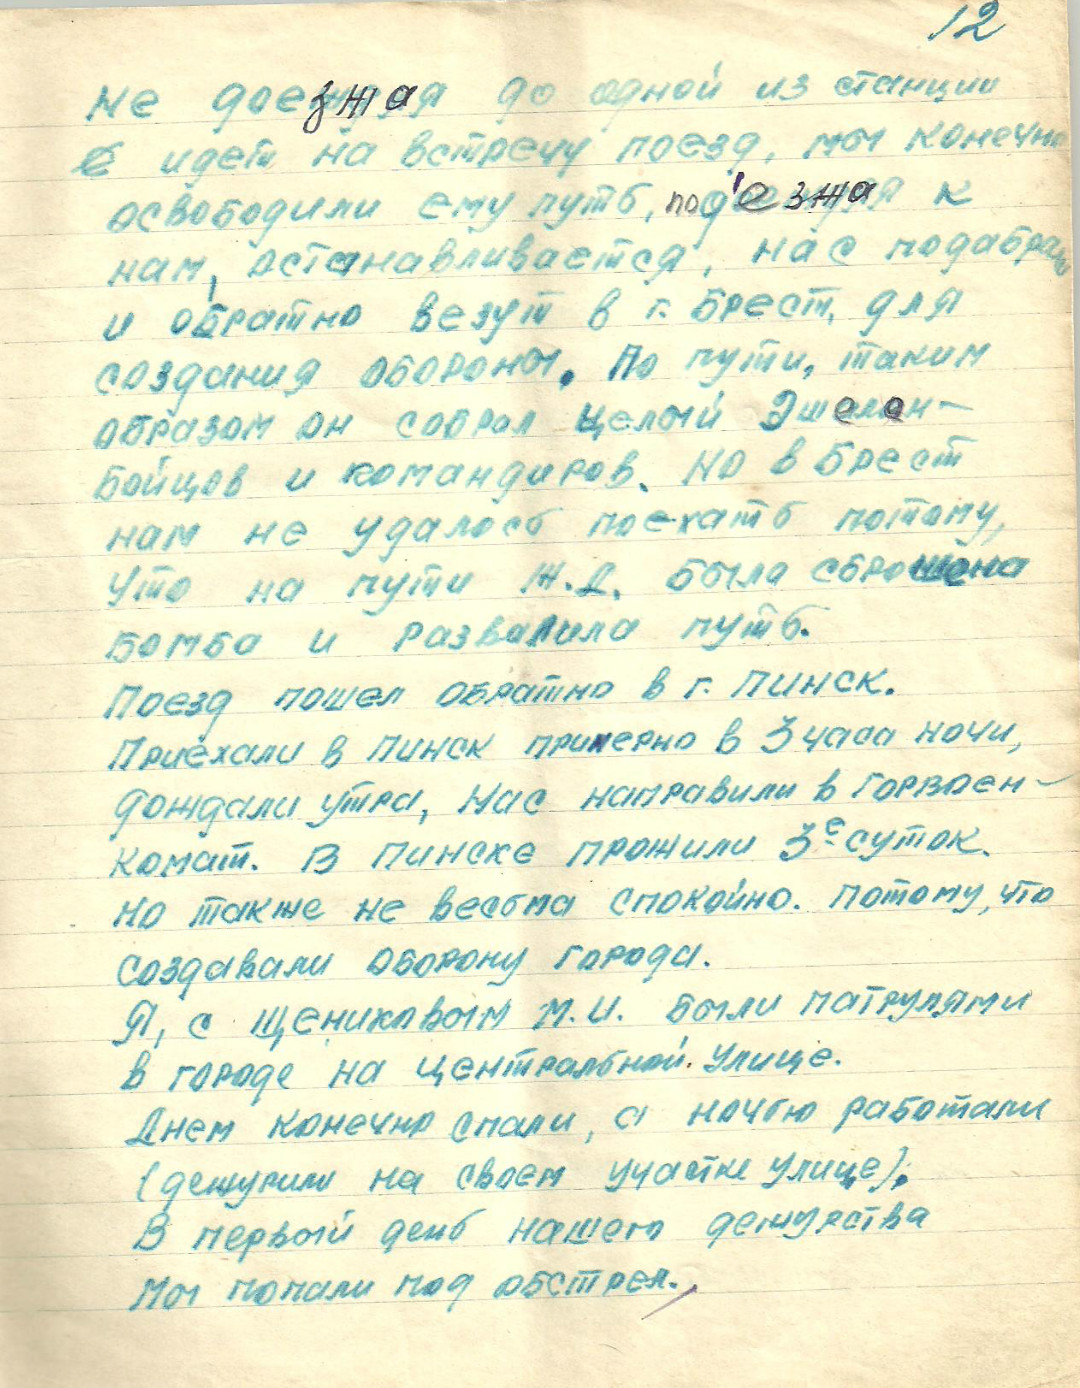 12
Не доезжая до одной из станции
идет на встречу поезд, мы конечно
освободили ему путь, под'езжая к
нам, останавливается, нас подабрал
и обратно везут в г. Брест, для
создания обороны. По пути, таким
образом он собрал целый Эшелон-
Бойцов и командиров. Но в Брест
нам не удалось поехать потому,
что на пути Ж.Д. была сброшена
бомба и развалила путь.
Поезд пошел обратно в г. Пинск.
Приехали в Пинск примерно в 3 часа ночи,
дождали утра, нас направили в Горвоен-
комат. В Пинске прожили 3е суток.
Но также не весьма спокойно. Потому, что
создавали оборону города.
Я, с Щениковым М.И. были патрулями
в городе на центральной улице.
Днем конечно спали, а ночью работали
(дежурили на своем участке улице).
В первый день нашего дежурства
мы попали под обстрел.